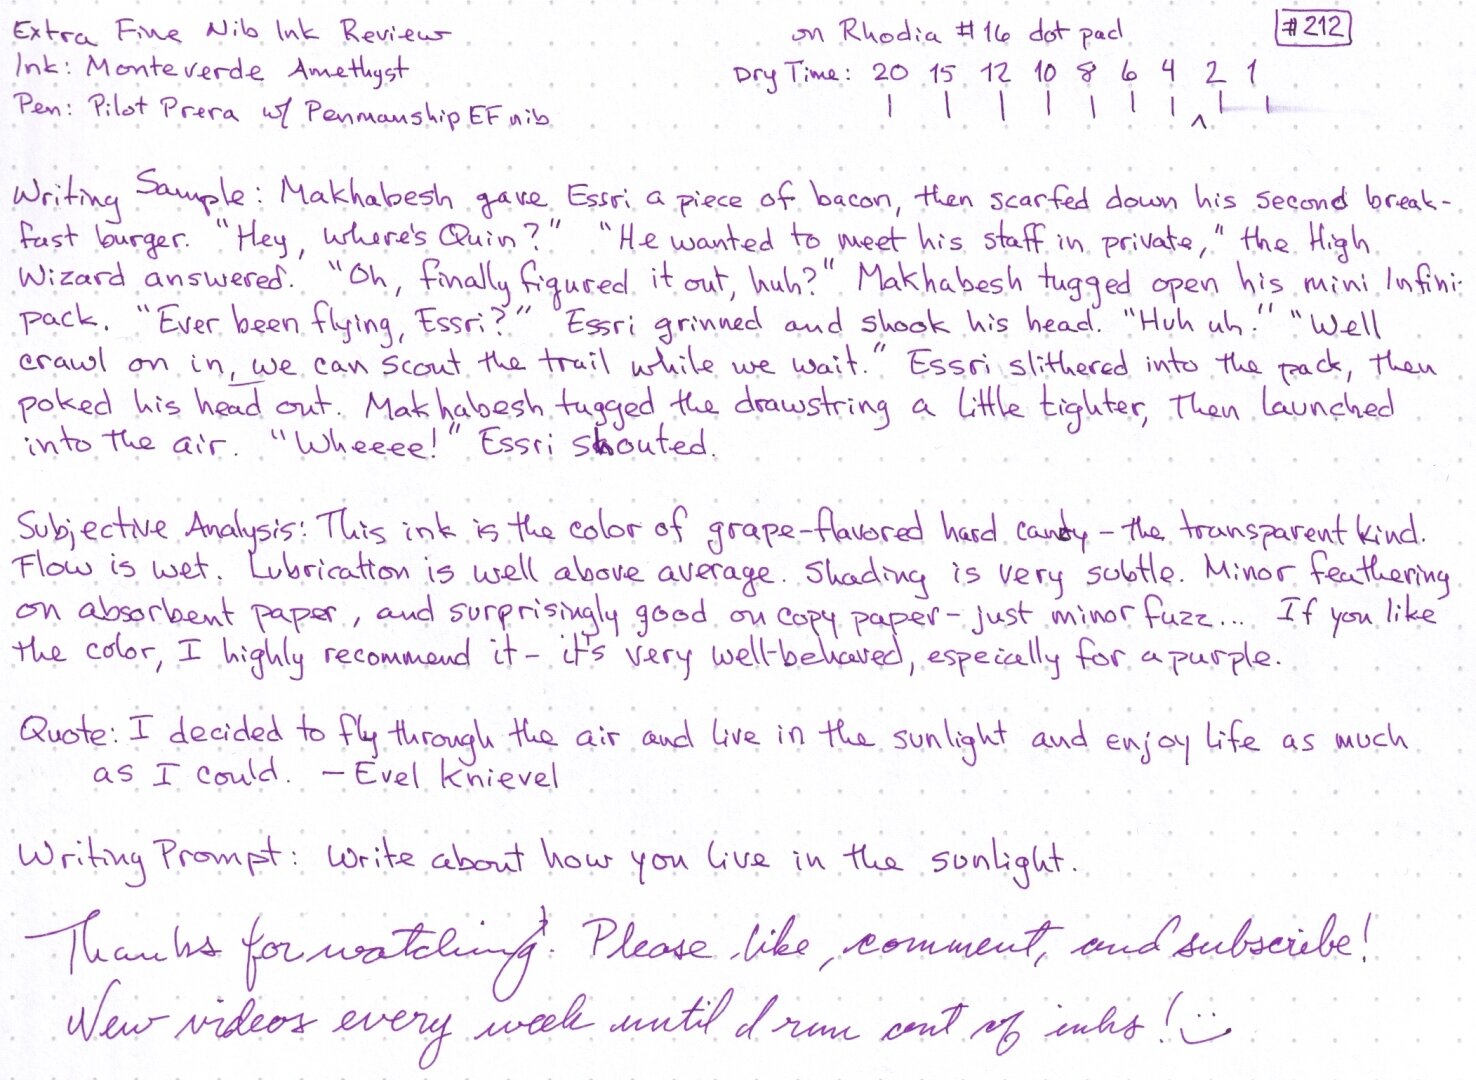 Extra Fine Nib Ink Review on Rhodia #16 dot pad #212
Ink: Monteverde Amethyst Dry Time: 20 15 12 10 8 6 4 2 1
Pen: Pilot Prera w/ Penmanship EF nib
Writing Sample: Makhabesh gave Essri a piece of bacon, then scarfed down his second break-
fast burger. "Hey, where's Quin?" "He wanted to meet his staff in private," the High
Wizard answered. "Oh, finally figured it out, huh?" Makhabesh tugged open his mini Infini-
pack. "Ever been flying, Essri?" Essri grinned and shook his head. "Huh uh." "Well
crawl on in, we can scout the trail while we wait." Essri slithered into the pack, then
poked his head out. Makhabesh tugged the drawstring a little tighter, then launched
into the air. "Wheeee!" Essri shouted.
Subjective Analysis: This ink is the color of grape-flavored hard candy - the transparent kind.
Flow is wet. Lubrication is well above average. Shading is very subtle. Minor feathering
on absorbent paper, and surprisingly good on copy paper - just minor fuzz... If you like
the color, I highly recommend it - it's very well-behaved, especially for a purple.
Quote: I decided to fly through the air and live in the sunlight and enjoy life as much
as I could. - Evel Knievel
Writing Prompt: Write about how you live in the sunlight.
Thanks for watching! Please like, comment, and subscribe!
New videos every week until I run out of inks! :)